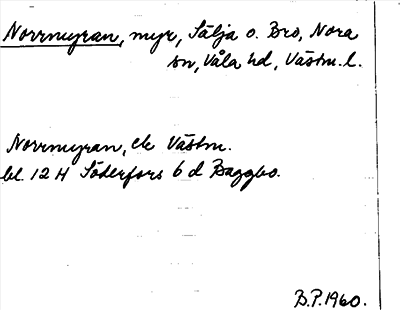 Norrmyran, myr, Sälja o. Bro, Nora
sn, Våla hd, Västm. l.
Norrmyran, ek Västm.
bl. 12 H Söderfors 6 d Baggbo.
B.P. 1960.